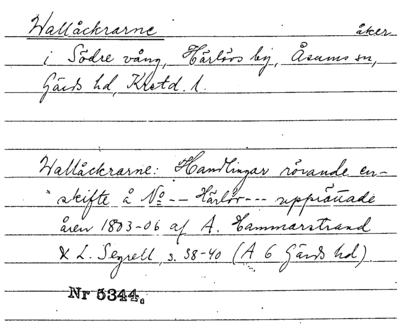 Wallåckrarne åker
i Södre vång, Härlövs by, Åsums sn,
Gärds hd, Krstd. l.
Wallåckrarne: Handlingar rörande en-
skifte å No -- Härlöv --- upprättade
åren 1803-06 af A. Hammarstrand
& L. Segrell, s. 38-40 (A 6 Gärds hd).
Nr 5344.